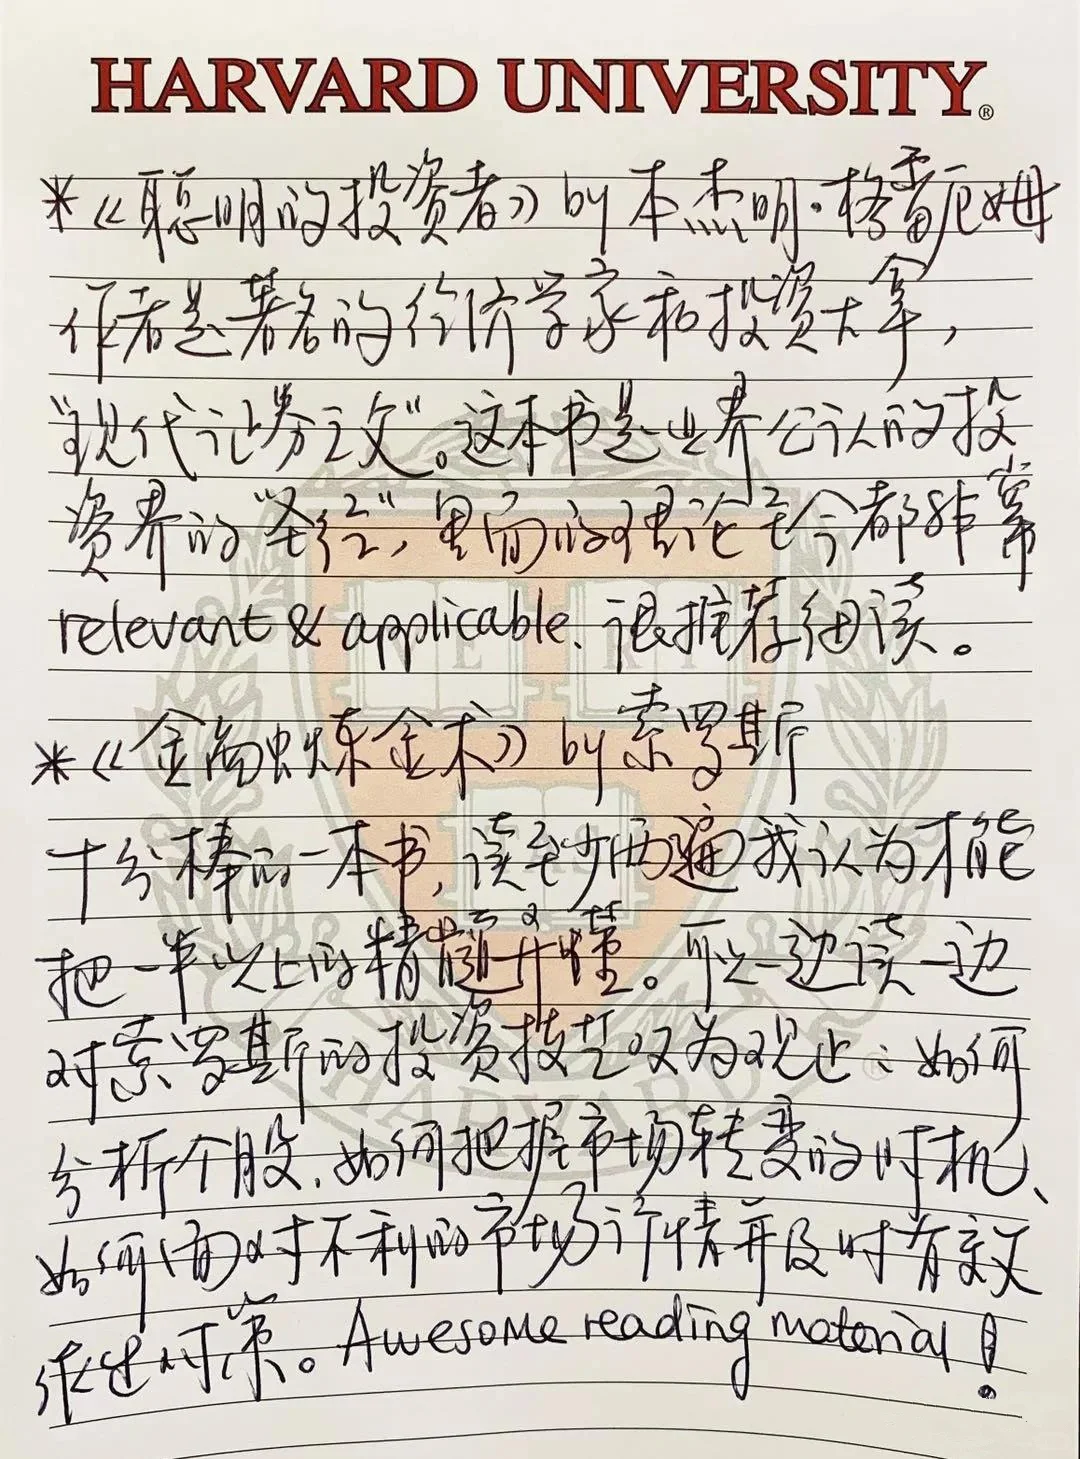 HARVARD UNIVERSITY®
*《聪明的投资者》by 本杰明·格雷厄姆
作者是著名的经济学家和投资大拿，
"现代证券之父"。这本书是业界公认的投
资界的"圣经"，里面的理论至今都非常
relevant & applicable、很推荐细读。
*《金融炼金术》by 索罗斯
十分棒的一本书，读至少两遍我认为才能
把一半以上的精髓弄懂。可以一边读一边
对索罗斯的投资技艺叹为观止：如何
分析个股、如何把握市场转变的时机、
如何面对不利的市场行情并及时有效
做出对策。Awesome reading material！
VE RI
TAS
HARVARD